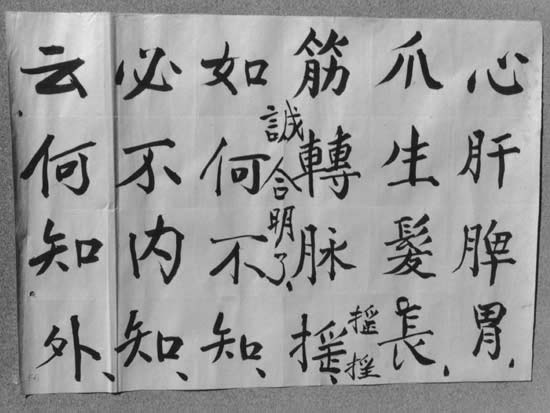 心肝脾胃、
爪生髮長、
筋轉脉搖、
搖搖
誠合明了、
如何不知、
必不内知、
云何知外、